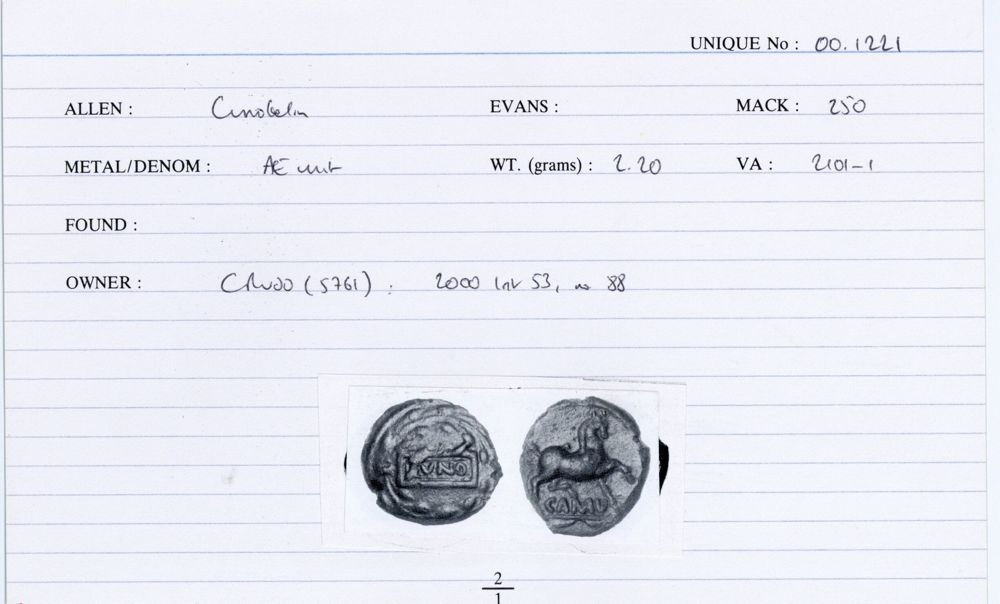 UNIQUE No : 00.1221
ALLEN : Cunobelin EVANS : MACK : 250
METAL/DENOM : AE unit WT. (grams) : 2.20 VA : 2101-1
FOUND :
OWNER : (5761) : 2000 53, no 88
VNO
CAMV
2
1